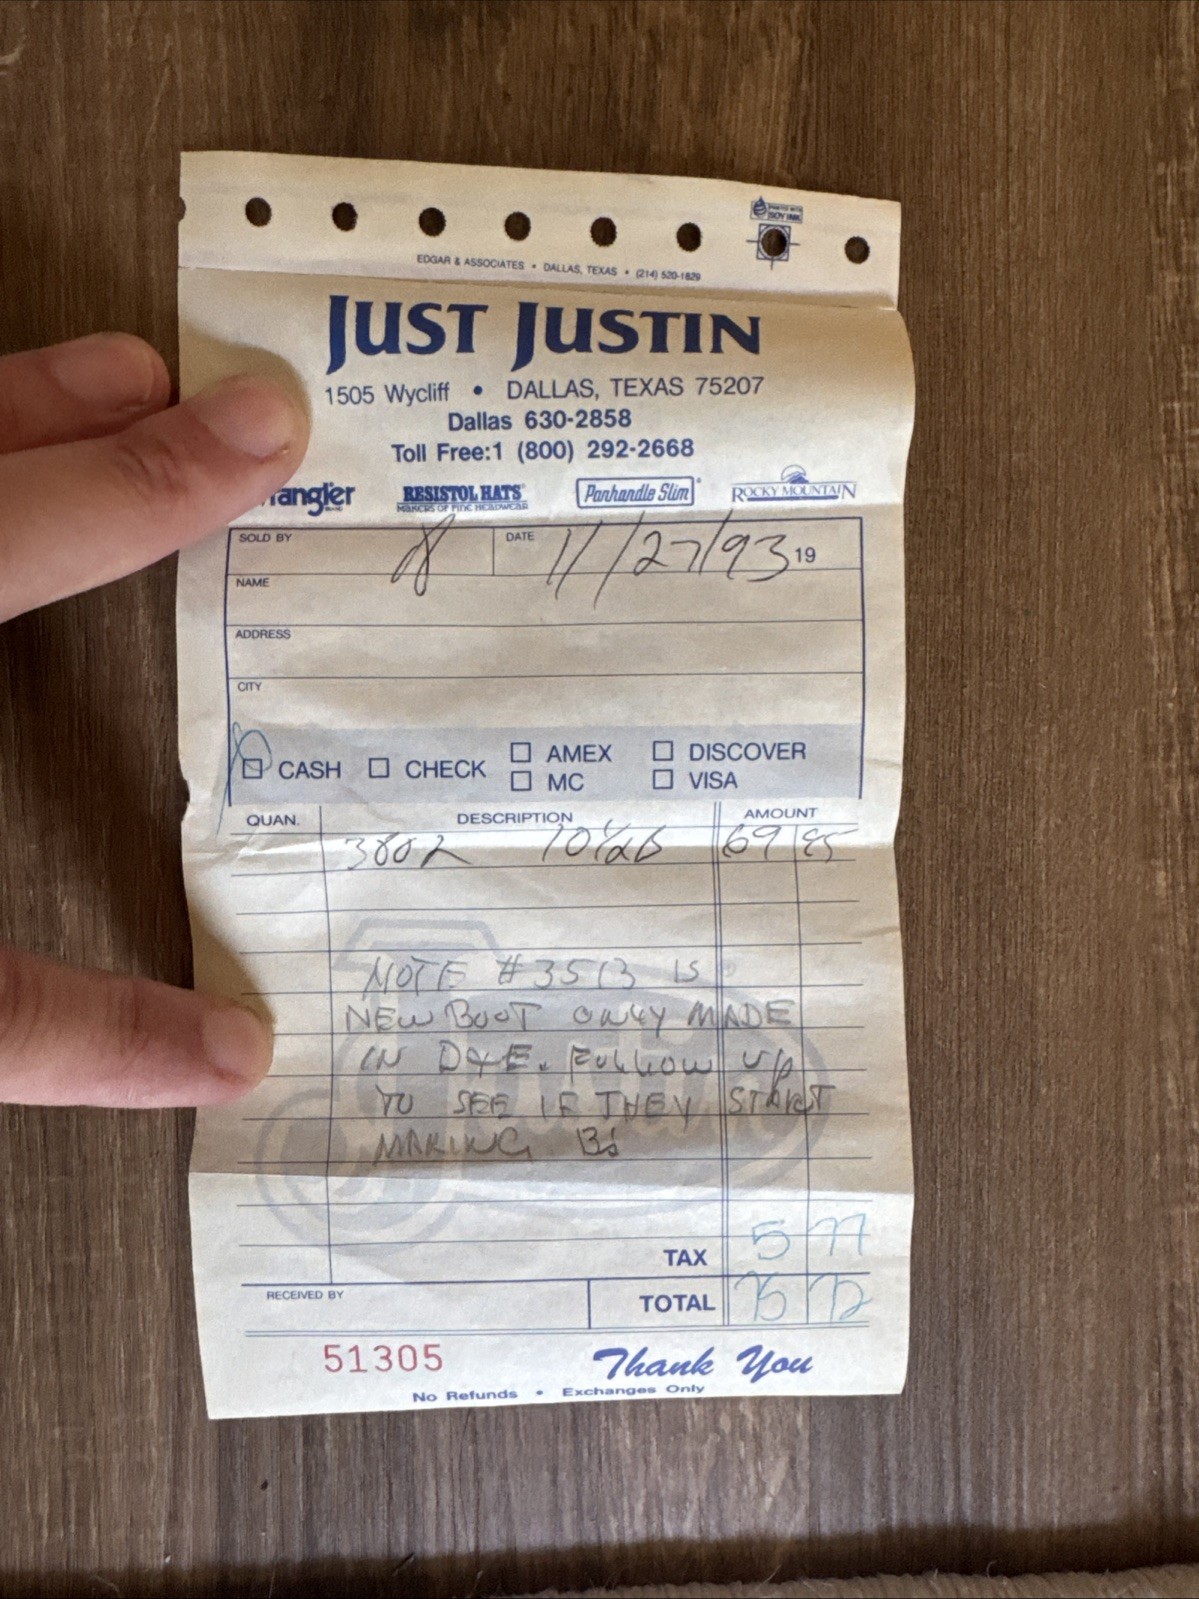 PRINTED WITH
SOY INK
EDGAR & ASSOCIATES • DALLAS, TEXAS • (214) 520-1629
JUST JUSTIN
1505 Wycliff • DALLAS, TEXAS 75207
Dallas 630-2858
Toll Free:1 (800) 292-2668
rangler RESISTOL HATS® Panhandle Slim® ROCKY MOUNTAIN
BRAND MAKERS OF FINE HEADWEAR
SOLD BY DATE 11/27/93 19
NAME
ADDRESS
CITY
CASH CHECK AMEX DISCOVER
MC VISA
QUAN. DESCRIPTION AMOUNT
3802 10½B 69 95
NOTE #3513 IS
NEW BOOT ONLY MADE
IN D&E. FOLLOW UP
TO SEE IF THEY START
MAKING B's
TAX 5 77
RECEIVED BY TOTAL 75 72
51305 Thank You
No Refunds • Exchanges Only